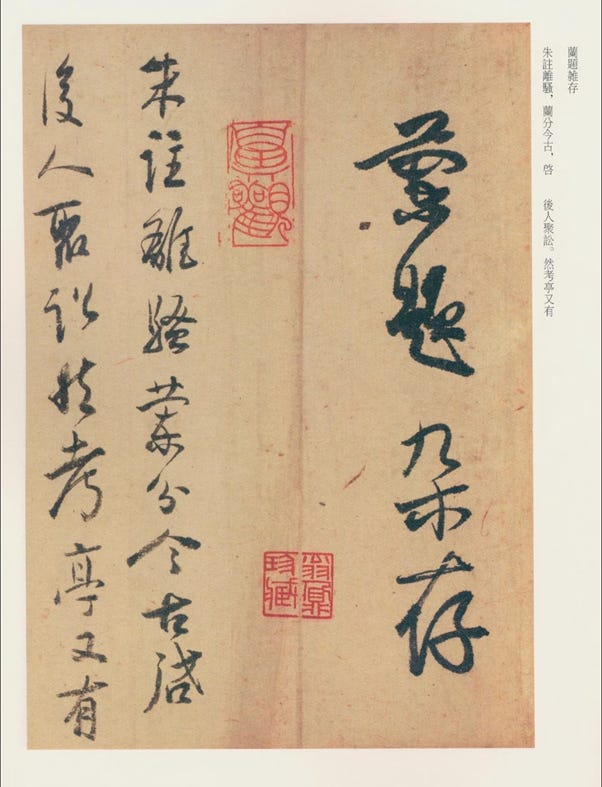 蘭題雜存
朱註離騷，蘭分今古，啓
後人聚訟。然考亭又有
蘭題雜存
朱註離騷蘭分今古啓
後人聚訟然考亭又有
翁鼎
珍臧